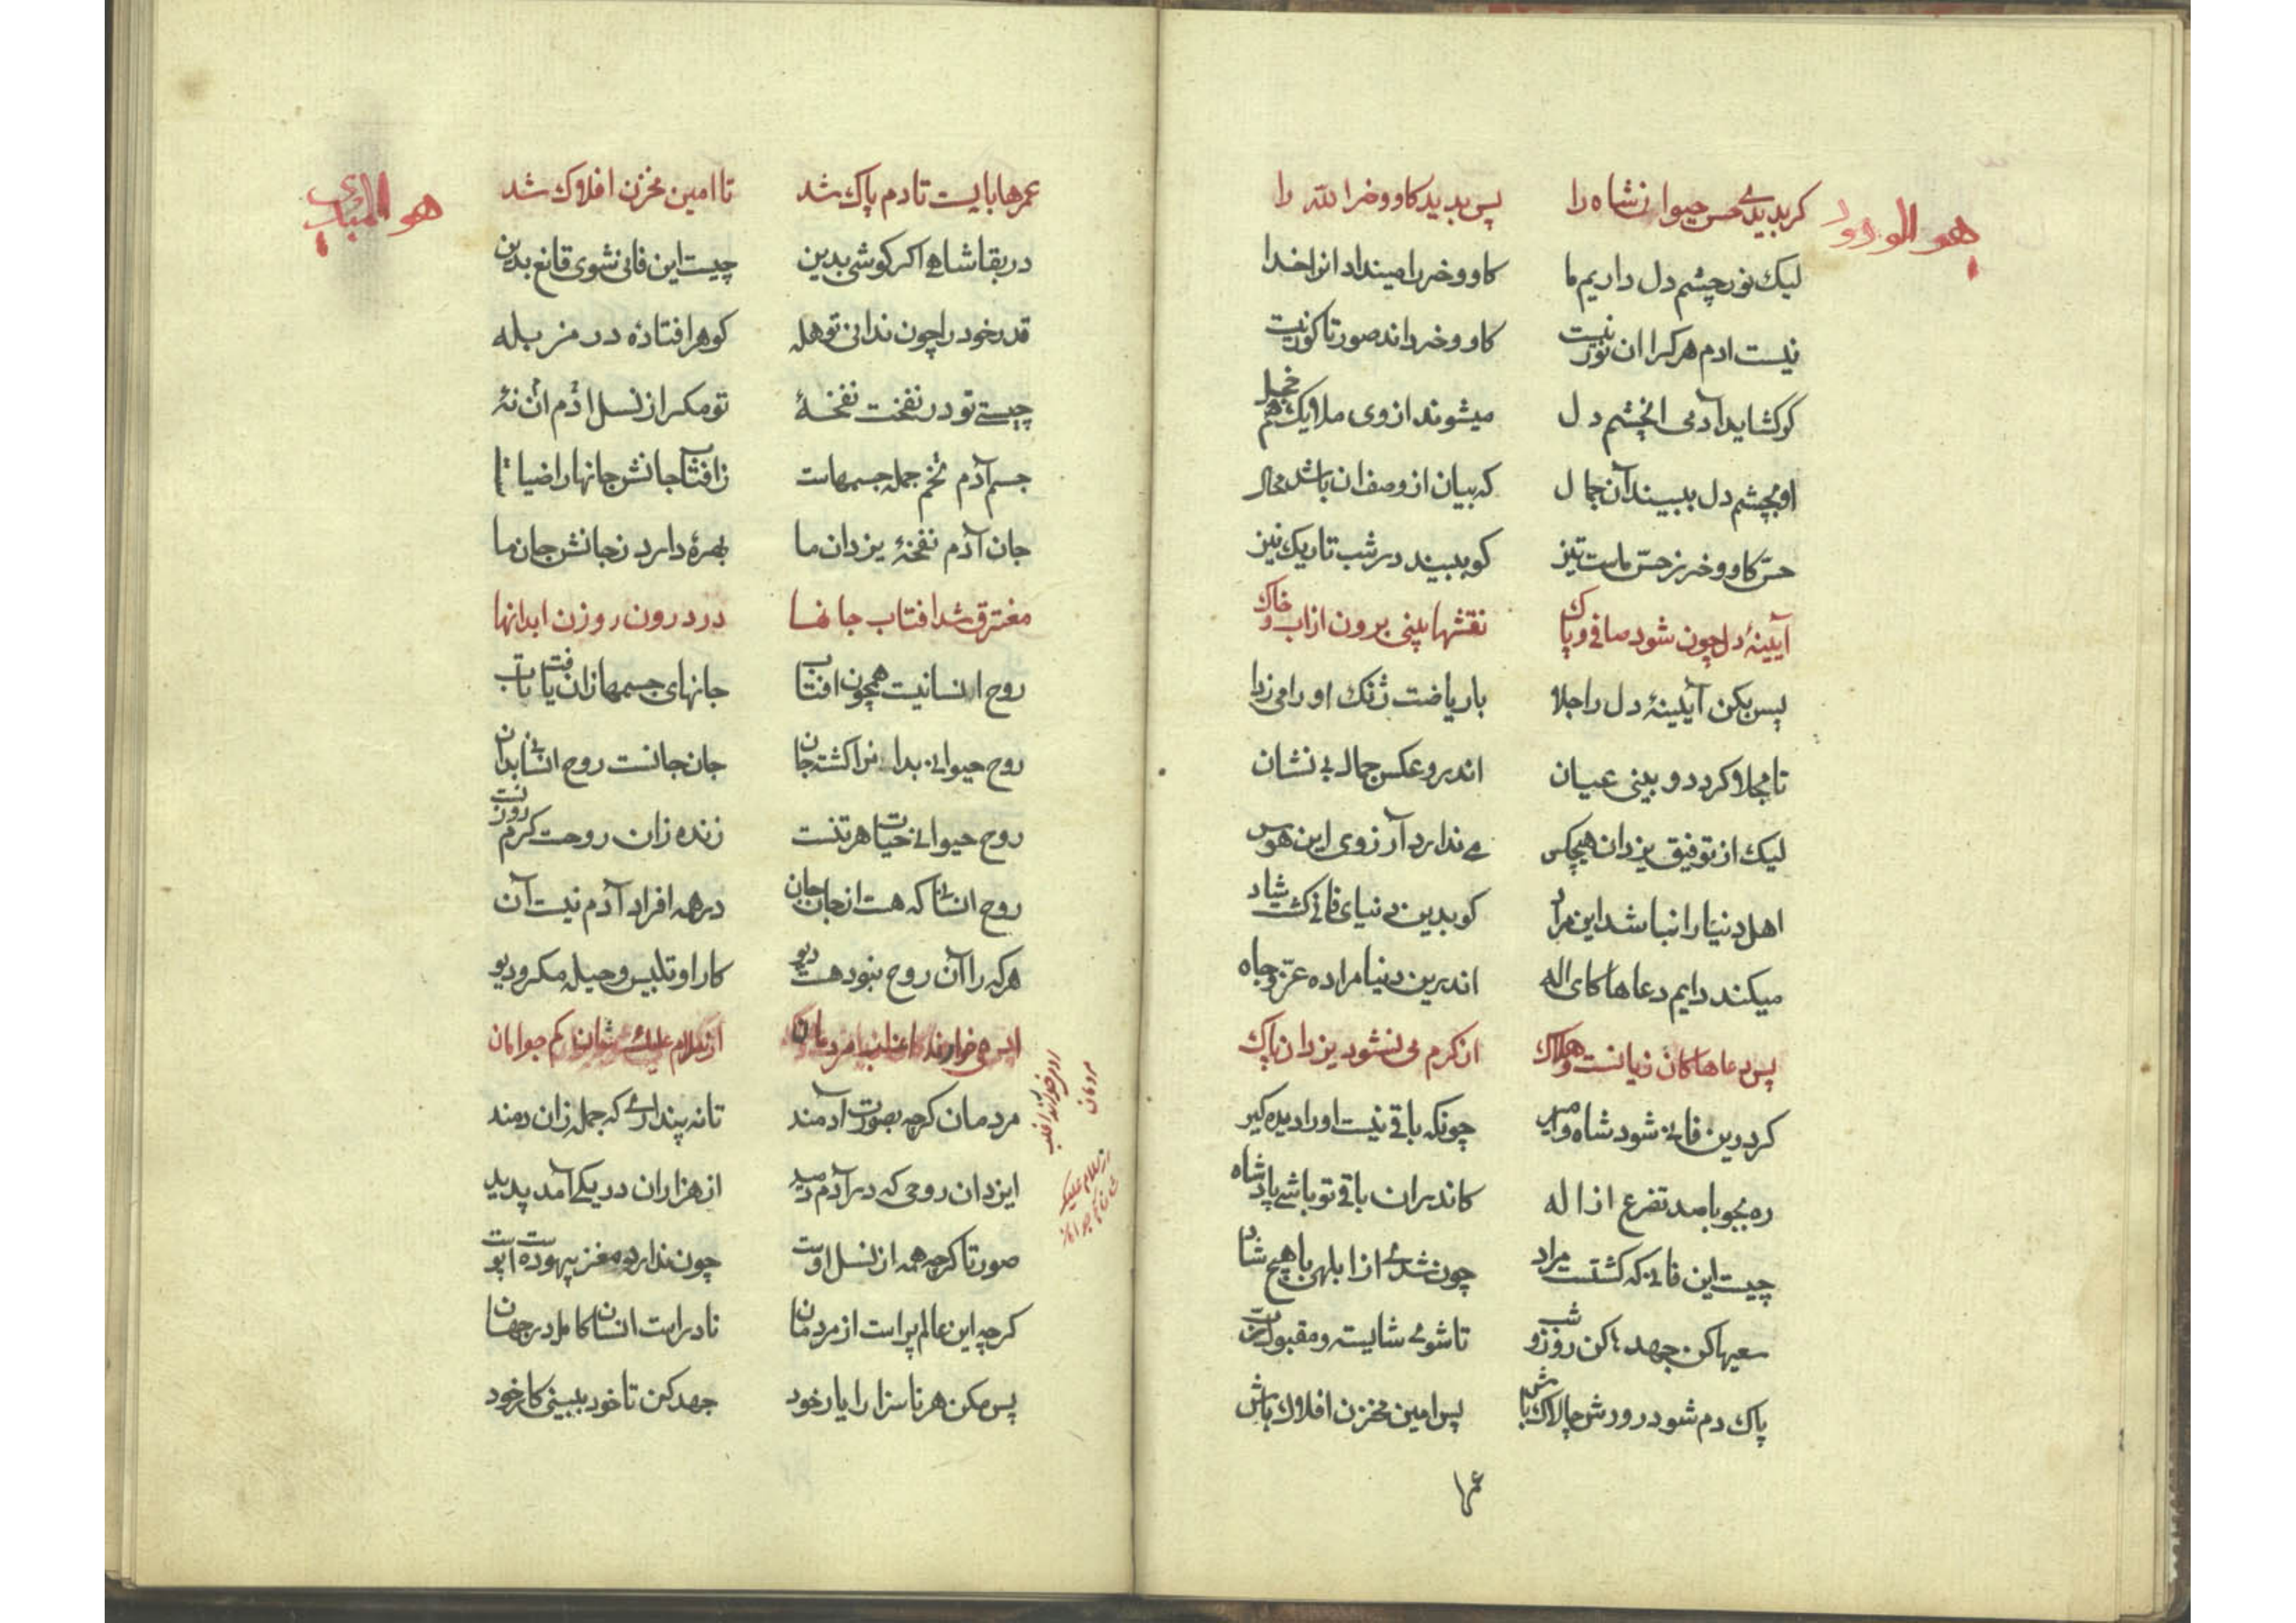 هو الودود
کر بدیدی حس حیوان شاه را پس بدید کاو و خر الله را
لیک نور چشم دل داریم ما کاو و خر را میندادانرا خدا
نیست ادم هر کرا ان نور نیست کاو و خر داند صورتا کور نیست
کو کشاید آدمی انچشم دل میشوند از وی ملایک هم خجل
او بچشم دل ببیند آن جمال که بیان از وصف ان باشد محال
حس کاو و خر ز حس ماست تیز کو ببیند در شب تاریک نیز
آیینهٔ دل چون شود صافی و پاک نقشها بینی برون از اب و خاک
پس بکن آیینهٔ دل را جلا با ریاضت ژنک او را می زدا
تا مجلا کردد و بینی عیان اندرو عکس جمال بی نشان
لیک از توفیق یزدان هیچکس می ندارد آرزوی این هوس
اهل دنیا را نباشد این مراد کو بدین دنیای فانی کشت شاد
میکند دایم دعاها کای اله اندرین دنیا مرا ده عز و جاه
پس دعاها کان زیانست و هلاک از کرم می نشنود یزدان پاک
کر درین فانی شود شاه و امیر چونکه باقی نیست او را دیده کیر
ره بجو با صد تضرع از اله کاندران باقی تو باشی پادشاه
چیست این فانی که کشتست مراد چون شدی از ابلهی با هیچ شاد
سعیها کن جهدها کن روز و شب تا شوی شایسته و مقبول رب
پاک دم شو در روش چالاک باش پس امین مخزن افلاک باش
عمرها
هو المبدی
عمرها بایست تا دم پاک شد تا امین مخزن افلاک شد
در بقا شاهی اکر کوشی بدین چیست این فانی نشوی قانع بدین
قدر خود را چون ندانی تو هله کوهر افتاده در مزبله
چیستی تو در نفخت نفخهٔ تو مکر از نسل ادم آن نهٔ
جسم آدم تخم جمله جسمهاست ز افتاب جانش جانها را ضیاا
جان آدم نفخهٔ یزدان ما بهرهٔ دارد ز جانش جان ما
مفترق شد افتاب جانها در درون روزن ابدانها
روح انسانیت همچون افتاب جانهای جسمها زان یافت تاب
روح حیوانی بدانرا کشته جان جان جانست روح انسانی بدان
روح حیوانی حیات هر تنست زنده زان روحت کرم
روح انسانی که هست از جان جان در همه افراد آدم نیست آن
هر که را آن روح نبود هست دیو کار او تلبیس و حیله مکر و ریو
آدمی خوارند اغلب مردمان از سلام علیک شان کم جو امان
مردمان کرچه بصورت آدمند تا نه پنداری که جمله زان دمند
ایزد ان روحی که در آدم دمید از هزاران در یکی آمد پدید
صورتا کرچه همه از نسل اوست چون ندارد مغز بیهوده است پوست
کرچه این عالم پر است از مردمان نادر است انسان کامل در جهان
پس مکن هر ناسزا را یار خود جهد کن تا خود ببینی کار خود
آدمی خوارند اغلب
مردمان
از سلام علیک
شان کم جو امان